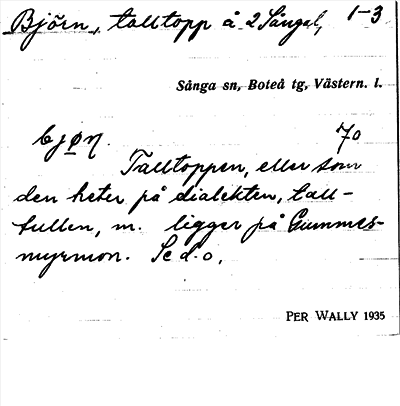 Björn, talltopp å 2 Sångal, 1-3
Sånga sn, Boteå tg, Västern. l.
bjø̠ɳ. 70
Talltoppen, eller som
den heter på dialekten, tall-
tullen, m. ligger på Gummes-
myrmon. Se d.o.
PER WALLY 1935